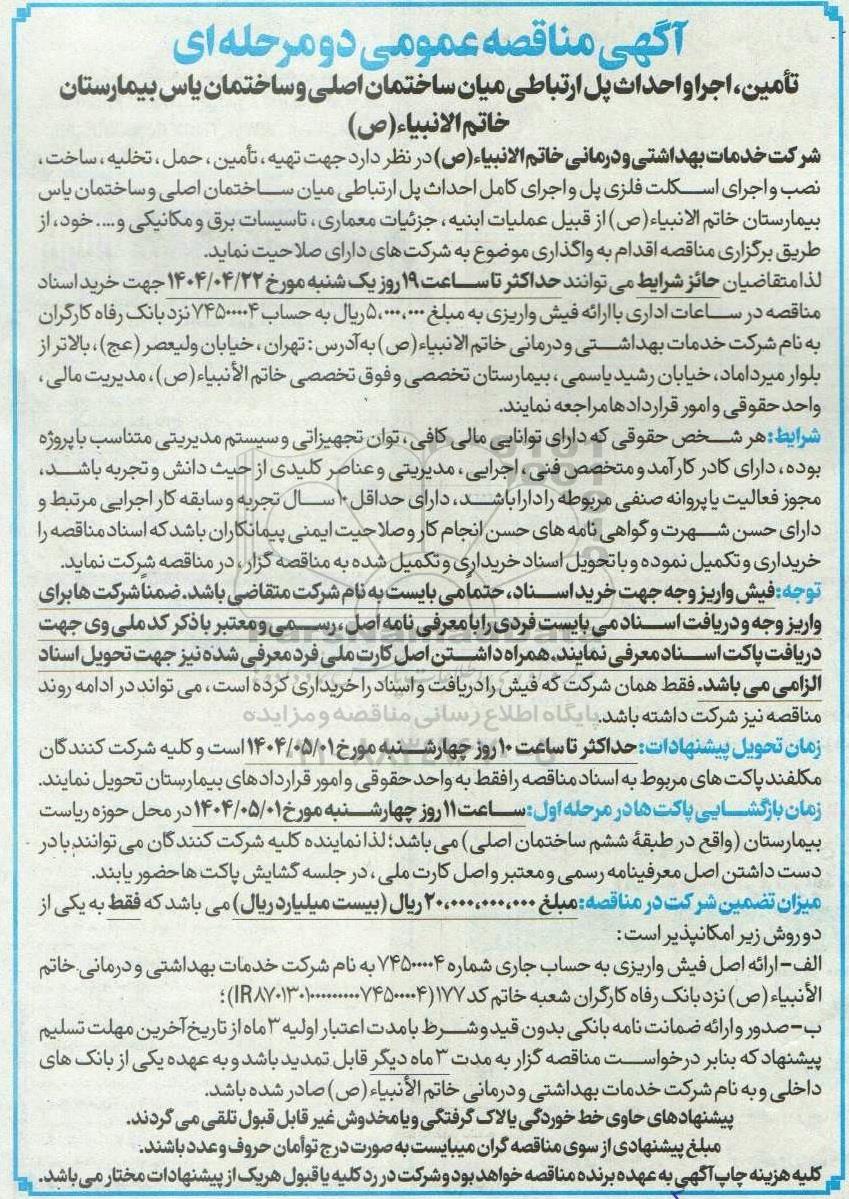 آگهی مناقصه عمومی دو مرحله ای
تأمین، اجرا و احداث پل ارتباطی میان ساختمان اصلی و ساختمان یاس بیمارستان
خاتم الانبیاء (ص)
شرکت خدمات بهداشتی و درمانی خاتم الانبیاء (ص) در نظر دارد جهت تهیه، تأمین، حمل، تخلیه، ساخت،
نصب و اجرای اسکلت فلزی پل و اجرای کامل احداث پل ارتباطی میان ساختمان اصلی و ساختمان یاس
بیمارستان خاتم الانبیاء (ص) از قبیل عملیات ابنیه، جزئیات معماری، تاسیسات برق و مکانیکی و .... خود، از
طریق برگزاری مناقصه اقدام به واگذاری موضوع به شرکت های دارای صلاحیت نماید.
لذا متقاضیان حائز شرایط می توانند حداکثر تا ساعت ۱۹ روز یک شنبه مورخ ۱۴۰۴/۰۴/۲۲ جهت خرید اسناد
مناقصه در ساعات اداری با ارائه فیش واریزی به مبلغ ۵،۰۰۰،۰۰۰ ریال به حساب ۷۴۵۰۰۰۰۴ نزد بانک رفاه کارگران
به نام شرکت خدمات بهداشتی و درمانی خاتم الانبیاء (ص) به آدرس: تهران، خیابان ولیعصر (عج)، بالاتر از
بلوار میرداماد، خیابان رشید یاسمی، بیمارستان تخصصی و فوق تخصصی خاتم الأنبیاء (ص)، مدیریت مالی،
واحد حقوقی و امور قراردادها مراجعه نمایند.
شرایط: هر شخص حقوقی که دارای توانایی مالی کافی، توان تجهیزاتی و سیستم مدیریتی متناسب با پروژه
بوده، دارای کادر کارآمد و متخصص فنی، اجرایی، مدیریتی و عناصر کلیدی از حیث دانش و تجربه باشد،
مجوز فعالیت یا پروانه صنفی مربوطه را دارا باشد، دارای حداقل ۱۰ سال تجربه و سابقه کار اجرایی مرتبط و
دارای حسن شهرت و گواهی نامه های حسن انجام کار و صلاحیت ایمنی پیمانکاران باشد که اسناد مناقصه را
خریداری و تکمیل نموده و با تحویل اسناد خریداری و تکمیل شده به مناقصه گزار، در مناقصه شرکت نماید.
توجه: فیش واریز وجه جهت خرید اسناد، حتماً می بایست به نام شرکت متقاضی باشد. ضمناً شرکت ها برای
واریز وجه و دریافت اسناد می بایست فردی را با معرفی نامه اصل، رسمی و معتبر با ذکر کد ملی وی جهت
دریافت پاکت اسناد معرفی نمایند. همراه داشتن اصل کارت ملی فرد معرفی شده نیز جهت تحویل اسناد
الزامی می باشد. فقط همان شرکت که فیش را دریافت و اسناد را خریداری کرده است، می تواند در ادامه روند
مناقصه نیز شرکت داشته باشد.
زمان تحویل پیشنهادات: حداکثر تا ساعت ۱۰ روز چهارشنبه مورخ ۱۴۰۴/۰۵/۰۱ است و کلیه شرکت کنندگان
مکلفند پاکت های مربوط به اسناد مناقصه را فقط به واحد حقوقی و امور قراردادهای بیمارستان تحویل نمایند.
زمان بازگشایی پاکت ها در مرحله اول: ساعت ۱۱ روز چهارشنبه مورخ ۱۴۰۴/۰۵/۰۱ در محل حوزه ریاست
بیمارستان (واقع در طبقهٔ ششم ساختمان اصلی) می باشد؛ لذا نماینده کلیه شرکت کنندگان می توانند با در
دست داشتن اصل معرفینامه رسمی و معتبر و اصل کارت ملی، در جلسه گشایش پاکت ها حضور یابند.
میزان تضمین شرکت در مناقصه: مبلغ ۲۰،۰۰۰،۰۰۰،۰۰۰ ریال (بیست میلیارد ریال) می باشد که فقط به یکی از
دو روش زیر امکانپذیر است:
الف- ارائه اصل فیش واریزی به حساب جاری شماره ۷۴۵۰۰۰۰۴ به نام شرکت خدمات بهداشتی و درمانی خاتم
الأنبیاء (ص) نزد بانک رفاه کارگران شعبه خاتم کد ۱۷۷
ب- صدور و ارائه ضمانت نامه بانکی بدون قید و شرط با مدت اعتبار اولیه ۳ ماه از تاریخ آخرین مهلت تسلیم
پیشنهاد که بنابر درخواست مناقصه گزار به مدت ۳ ماه دیگر قابل تمدید باشد و به عهده یکی از بانک های
داخلی و به نام شرکت خدمات بهداشتی و درمانی خاتم الأنبیاء (ص) صادر شده باشد.
پیشنهادهای حاوی خط خوردگی یا لاک گرفتگی و یا مخدوش غیر قابل قبول تلقی می گردند.
مبلغ پیشنهادی از سوی مناقصه گران میبایست به صورت درج توأمان حروف و عدد باشند.
کلیه هزینه چاپ آگهی به عهده برنده مناقصه خواهد بود و شرکت در رد کلیه یا قبول هریک از پیشنهادات مختار می باشد.
پایگاه اطلاع رسانی مناقصه و مزایده